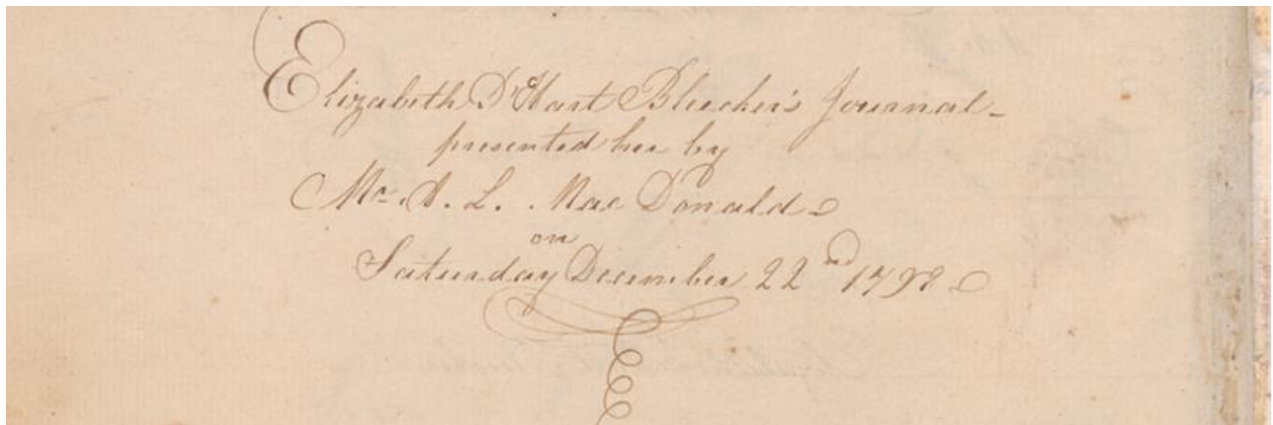 Elizabeth D'Hart Bleecker's Journal-
presented her by
Mr. A. L. Mac Donald
on
Saturday December 22nd 1798